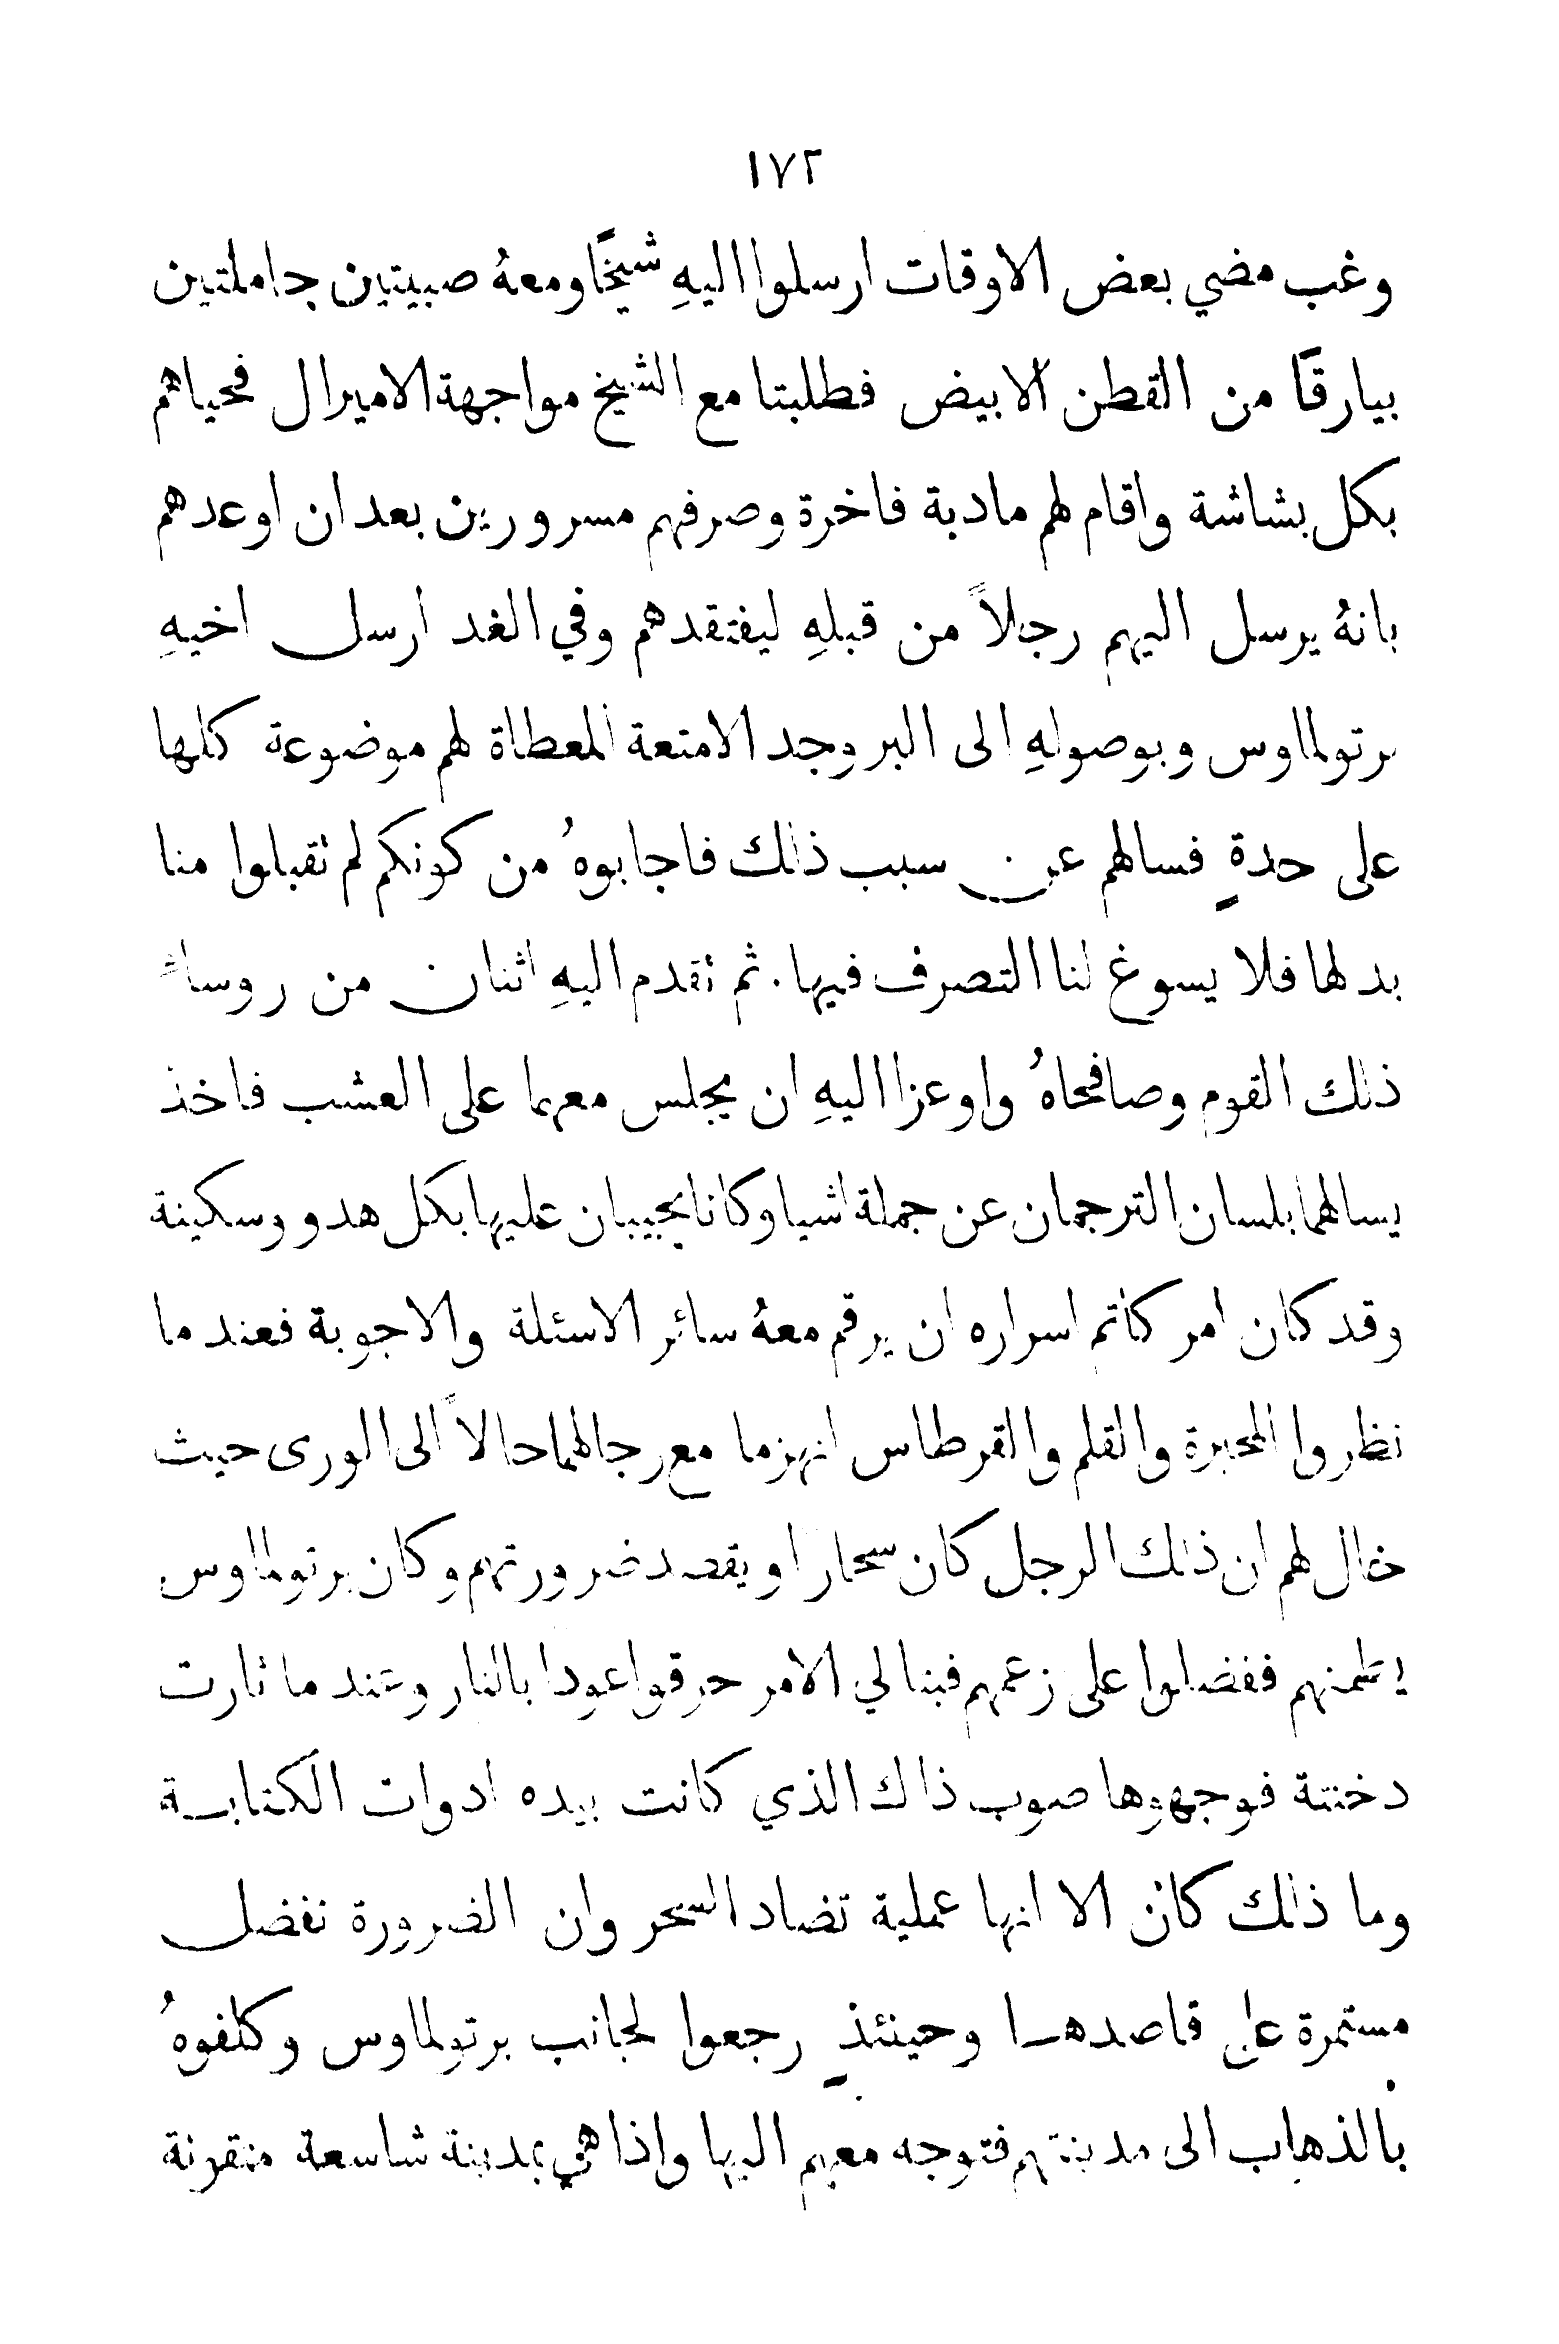 ١٧٢
وغب مضي بعض الاوقات ارسلوا اليهِ شيخًا ومعهُ صبيتين حاملتين
بيارقًا من القطن الابيض فطلبتا مع الشيخ مواجهة الاميرال فحياهم
بكل بشاشة واقام لهم مادبة فاخرة وصرفهم مسرورين بعد ان اوعدهم
بانهُ يرسل اليهم رجلاً من قبلهِ ليفتقدهم وفي الغد ارسل اخيهِ
برتولماوس وبوصولهِ الى البر وجد الامتعة المعطاة لهم موضوعة كلها
على حدةٍ فسالهم عن سبب ذلك فاجابوهُ من كونكم لم تقبلوا منا
بدلها فلا يسوغ لنا التصرف فيها. ثم تقدم اليهِ اثنان من روساءً
ذلك القوم وصافحاهُ واوعزا اليهِ ان يجلس معهما على العشب فاخذ
يسالهما بلسان الترجمان عن جملة اشيا وكانا يجيبان عليها بكل هدو وسكينة
وقد كان امر كاتم اسراره ان يرقم معهُ سائر الاسئلة والاجوبة فعندما
نظروا المحبرة والقلم والقرطاس انهزما مع رجالهما حالاً الى الورى حيث
خال لهم ان ذلك الرجل كان سحارا ويقصد ضرورتهم وكان برتولماوس
يطمنهم ففضلوا على زعمهم فبتالي الامر حرقوا عودا بالنار وعند ما ثارت
دخنتة فوجهوها صوب ذاك الذي كانت بيده ادوات الكتابة
وما ذلك كان الا انها عملية تضاد السحر وان الضرورة تفضل
مستمرة على قاصدها وحينئذٍ رجعوا لجانب برتولماوس وكلفوهُ
بالذهاب الى مدينتهم فتوجه معهم اليها واذا هي بمدينة شاسعة متقرنة